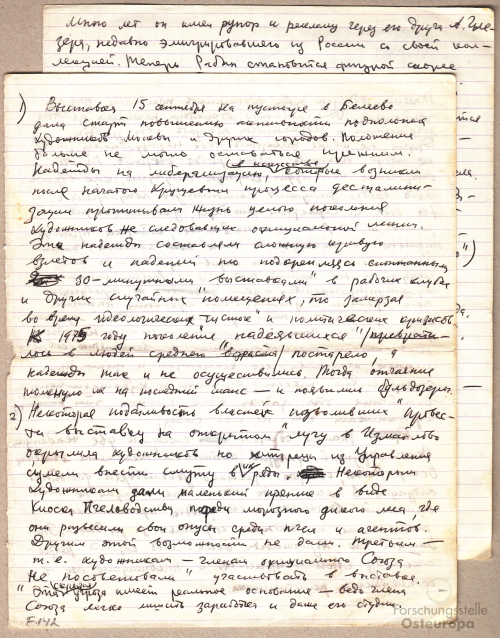 Много лет он имел рупор и рекламу через его друга А. Гле-
зера, недавно эмигрировавшего из России со своей кол-
лекцией. Теперь Рабин становится фигурой скорее
1) Выставка 15 сентября на пустыре в Беляево
дала старт повышению активности подпольных
художников Москвы и других городов. Положение
больше не могло оставаться прежним.
Надежды на либерализацию в искусстве, которые возникли
после начатого Хрущевым процесса десталини-
зации пропитывали жизнь целого поколения
художников не следовавших официальной линии.
Эти надежды составляли сложную кривую
взлетов и падений то подкрепляясь спонтанными
"30-минутными выставками" в рабочих клубах
и других случайных помещениях, то замирая
во время идеологических "чисток" и политических кризисов.
К 1975 году поколение "надеявшихся" /преврати-
лось в людей среднего возраста/ постарело, а
надежды так и не осуществились. Тогда отчаяние
толкнуло их на последний шанс — и появились бульдозеры.
2) Некоторая податливость властей позволивших "провес-
ти выставку на открытом" лугу в Измайлово
окрылила художников но хитрецы из Управления
сумели внести смуту в их ряды. Некоторым
художникам дали маленький кремле в виде
Киоска Пчеловодства посреди морозного дикого леса, где
они развесили свои опусы среди пчел и агентов.
Другим этой возможности не дали. Третьим —
т.е. художникам — членам официального Союза
"Не посоветовали" участвовать в выставке.
Эта скрытая угроза имеет реальное основание — ведь члена
Союза легко лишить заработка и даже его студии.
F. 142
Forschungsstelle
Osteuropa